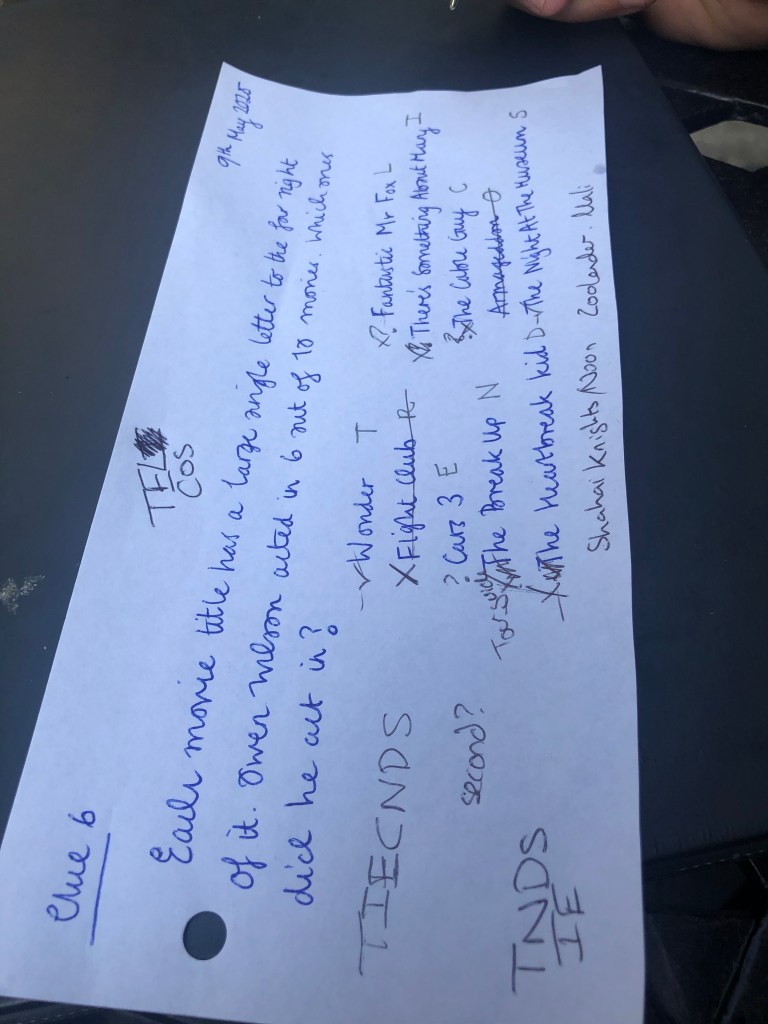 Clue 6
9th May 2025
TEL
COS
Each movie title has a large single letter to the far right
of it. Owen Wilson acted in 6 out of 10 movies. Which ones
did he act in?
Wonder T
X? Fantastic Mr Fox L
X Fight Club R
There's Something About Mary I
TIECNDS
? Cars 3 E
? X The Cable Guy C
second?
The Break Up N
Armageddon O
X The Heartbreak Kid D
The Night At The Museum S
TNDS
IE
Shahai Knights/Noon Zoolander.